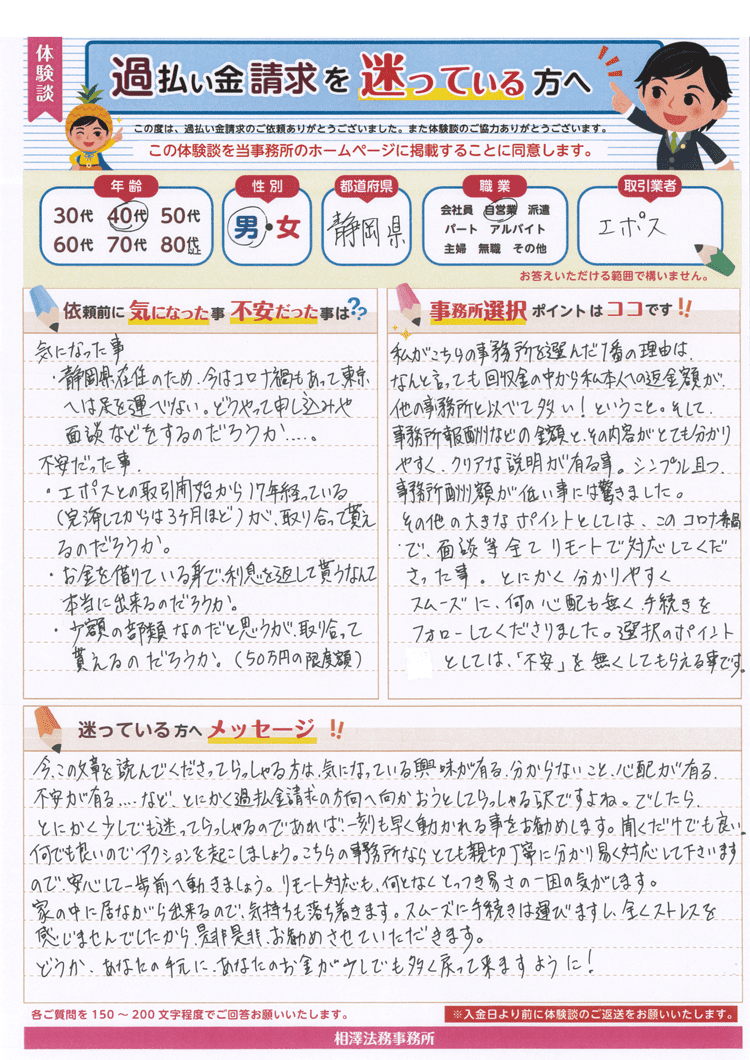 体験談
過払い金請求を迷っている方へ
この度は、過払い金請求のご依頼ありがとうございました。また体験談のご協力ありがとうございます。
この体験談を当事務所のホームページに掲載することに同意します。
年齢
30代 40代 50代
60代 70代 80代以上
性別
男・女
都道府県
静岡県
職業
会社員 自営業 派遣
パート アルバイト
主婦 無職 その他
取引業者
エポス
お答えいただける範囲で構いません。
依頼前に気になった事 不安だった事は??
気になった事
・静岡県在住のため、今はコロナ禍もあって東京
へは足を運べない。どうやって申し込みや
面談などをするのだろうか…。
不安だった事
・エポスとの取引開始から17年経っている
(完済してからは3ケ月ほど)が、取り合って貰え
るのだろうか。
・お金を借りている身で、利息を返して貰うなんて
本当に出来るのだろうか。
・少額の部類なのだと思うが、取り合って
貰えるのだろうか。(50万円の限度額)
事務所選択 ポイントはココです!!
私がこちらの事務所を選んだ1番の理由は、
なんと言っても回収金の中から私本人への返金額が、
他の事務所と比べて多い!ということ。そして、
事務所報酬などの金額と、その内容がとても分かり
やすく、クリアな説明が有る事。シンプル且つ、
事務所報酬額が低い事には驚きました。
その他の大きなポイントとしては、このコロナ禍
で、面談等全てリモートで対応してくだ
さった事。とにかく分かりやすく
スムーズに、何の心配も無く手続きを
フォローしてくださりました。選択のポイント
としては、「不安」を無くしてもらえる事です。
迷っている方へ メッセージ!!
今、この文章を読んでくださってらっしゃる方は、気になっている、興味が有る、分からないこと、心配が有る、
不安が有る…など、とにかく過払金請求の方向へ向かおうとしてらっしゃる訳ですよね。でしたら、
とにかく少しでも迷ってらっしゃるのであれば、一刻も早く動かれる事をお勧めします。聞くだけでも良い、
何でも良いのでアクションを起こしましょう。こちらの事務所ならとても親切丁寧に分かり易く対応して下さいます
ので、安心して一歩前へ動きましょう。リモート対応も、何となくとっつき易さの一因の気がします。
家の中に居ながら出来るので、気持ちも落ち着きます。スムーズに手続きは運びますし、全くストレスを
感じませんでしたから、是非是非、お勧めさせていただきます。
どうか、あなたの手元に、あなたのお金が少しでも多く戻って来ますように!
各ご質問を150～200文字程度でご回答お願いいたします。
※入金日より前に体験談のご返送をお願いいたします。
相澤法務事務所